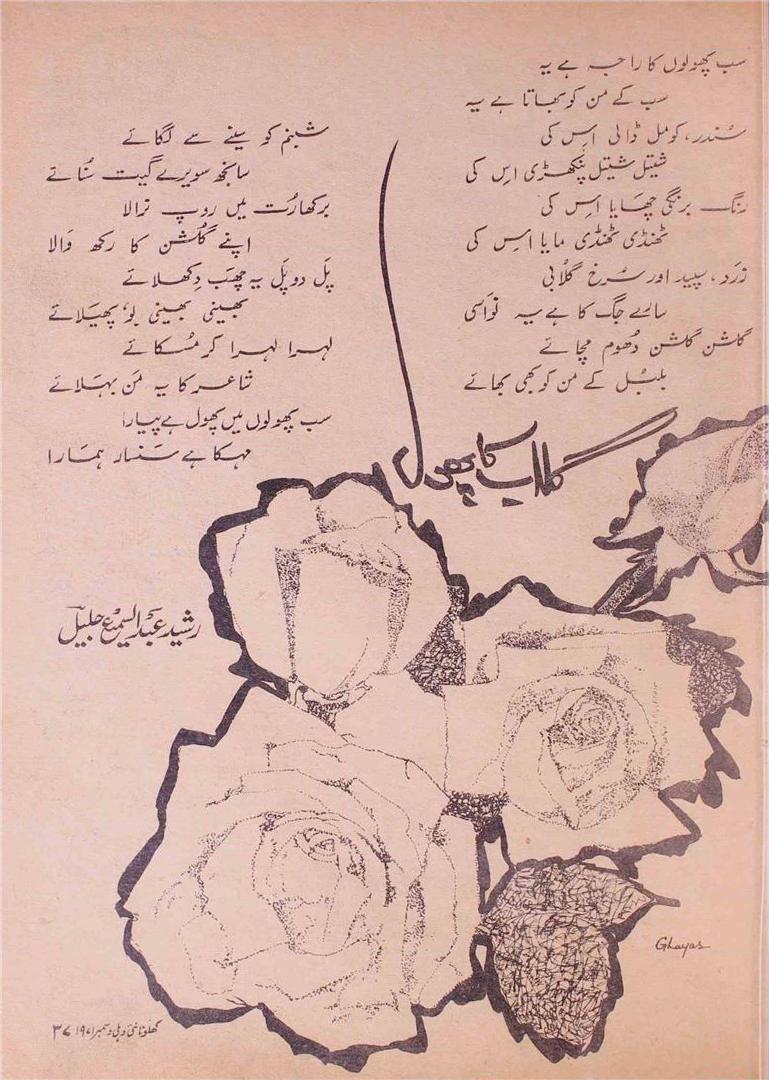 سب پھولوں کا راجہ ہے یہ
سب کے من کو بھاتا ہے یہ
سُندر، کومل ڈالی اِس کی
شیتل شیتل پنکھڑی اِس کی
رنگ برنگی چھایا اِس کی
ٹھنڈی ٹھنڈی مایا اِس کی
زرد، سپید اور سُرخ گلابی
سارے جگ کا ہے یہ نواسی
گلشن گلشن دُھوم مچائے
بلبُل کے من کو بھی بھائے
شبنم کو سینے سے لگائے
سانجھ سویرے گیت سُنائے
برکھارُت میں روپ نرالا
اپنے گلشن کا رکھ والا
پَل دو پَل یہ چھَب دِکھلائے
بھینی بھینی بُو، پھیلائے
لہرا لہرا کر مُسکائے
شاعر کا یہ مَن بہلائے
سب پھولوں میں پھول ہے پیارا
مہکا ہے سنسار ہمارا
گلاب کا پھول
رشید عبدالسمیع جلیل
Ghayas
کھلونا نئی دہلی دسمبر ۱۹۷۱ ۳۷